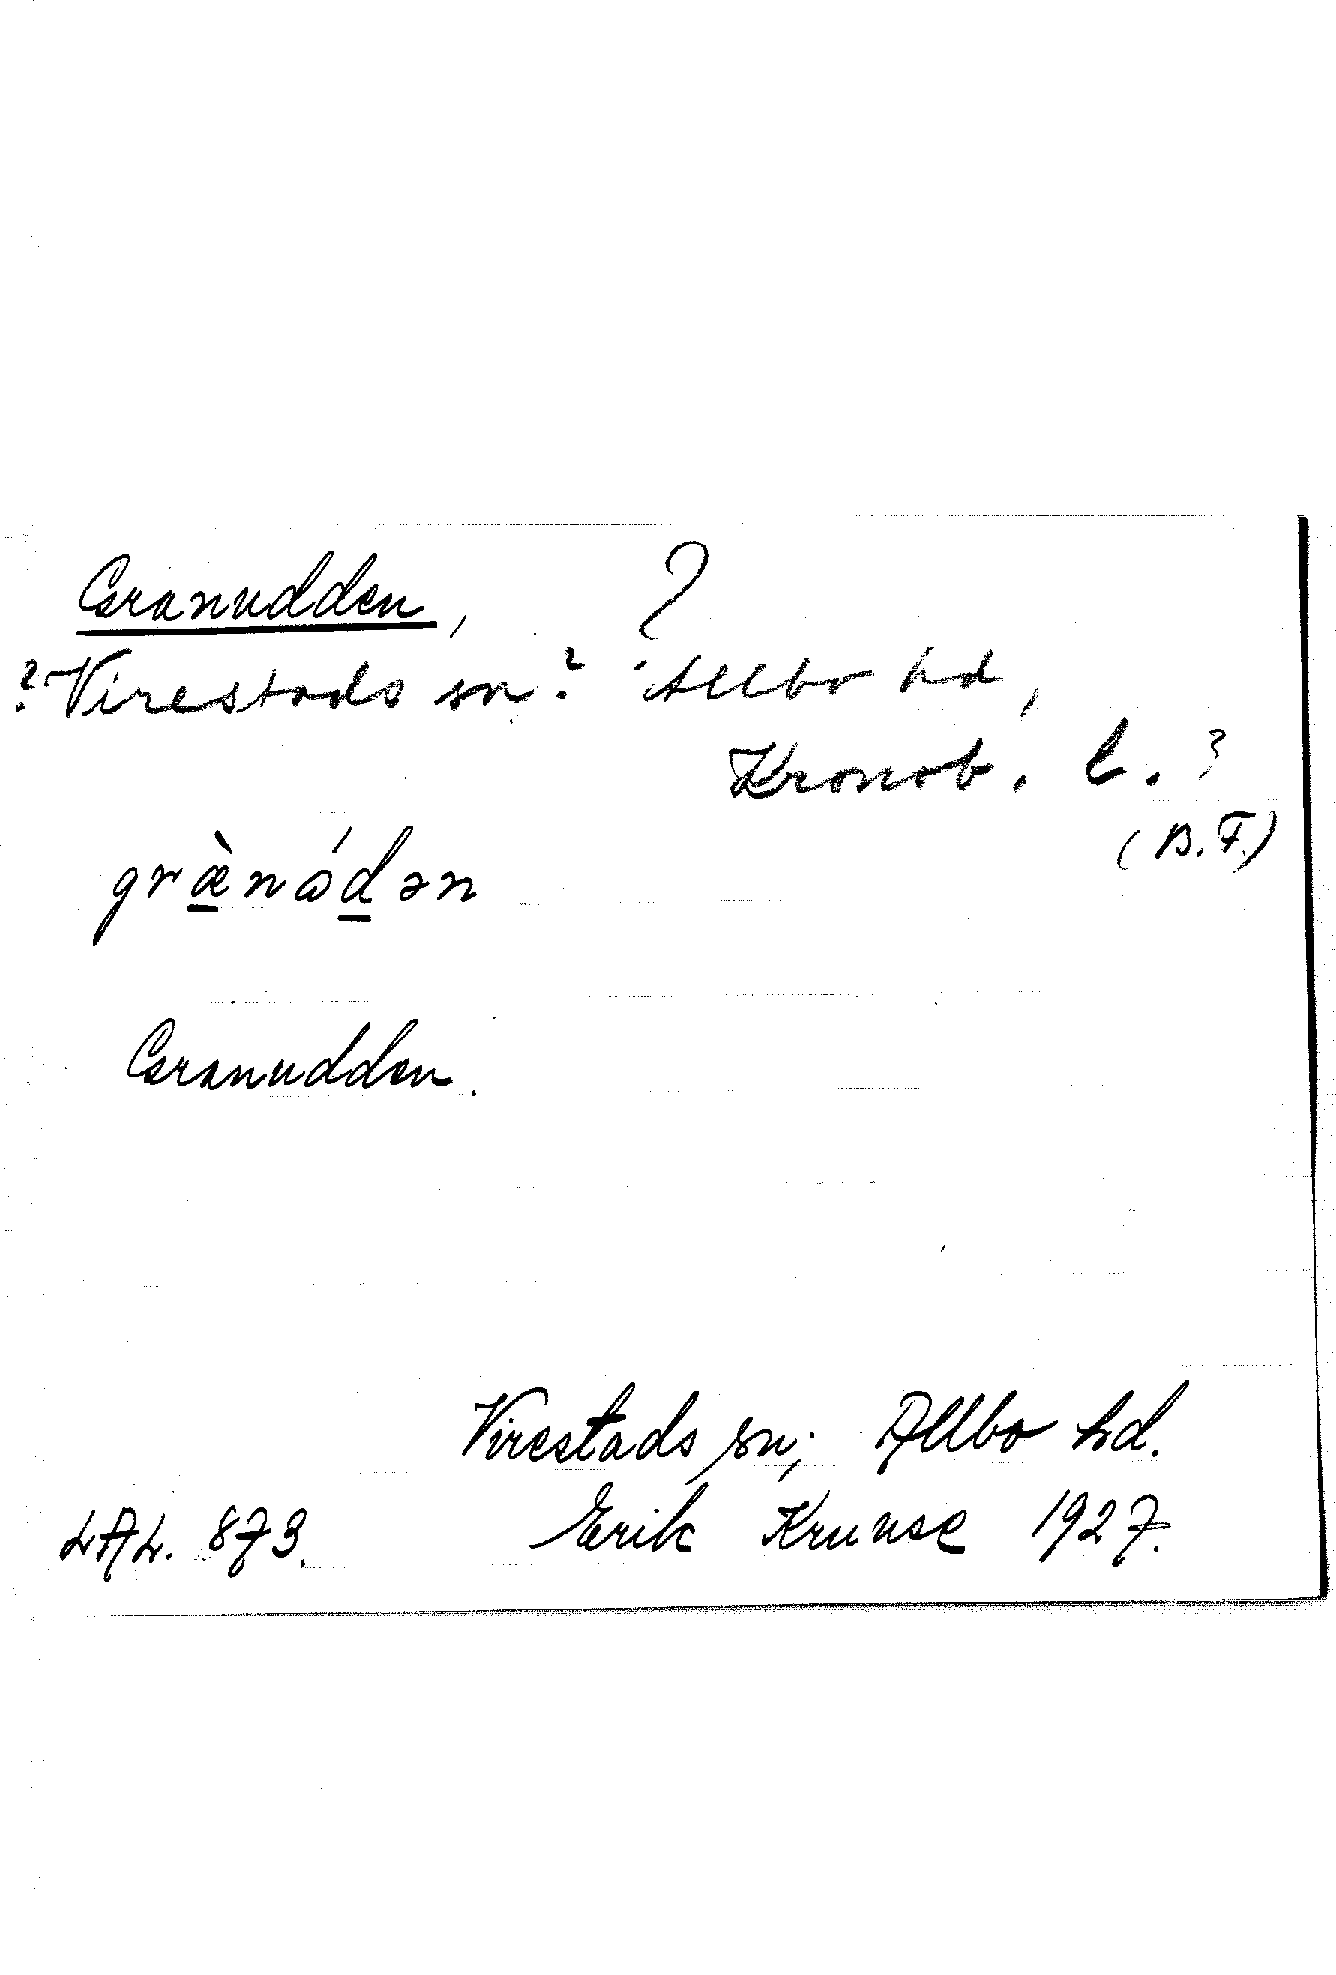 Granudden, ?
? Virestads sn ? Allbo hd,
Kronob. l. ?
(B.F.)
græ̀nɷ́dən
Granudden.
Virestads sn; Allbo hd.
LAL. 873. Erik Kruuse 1927.